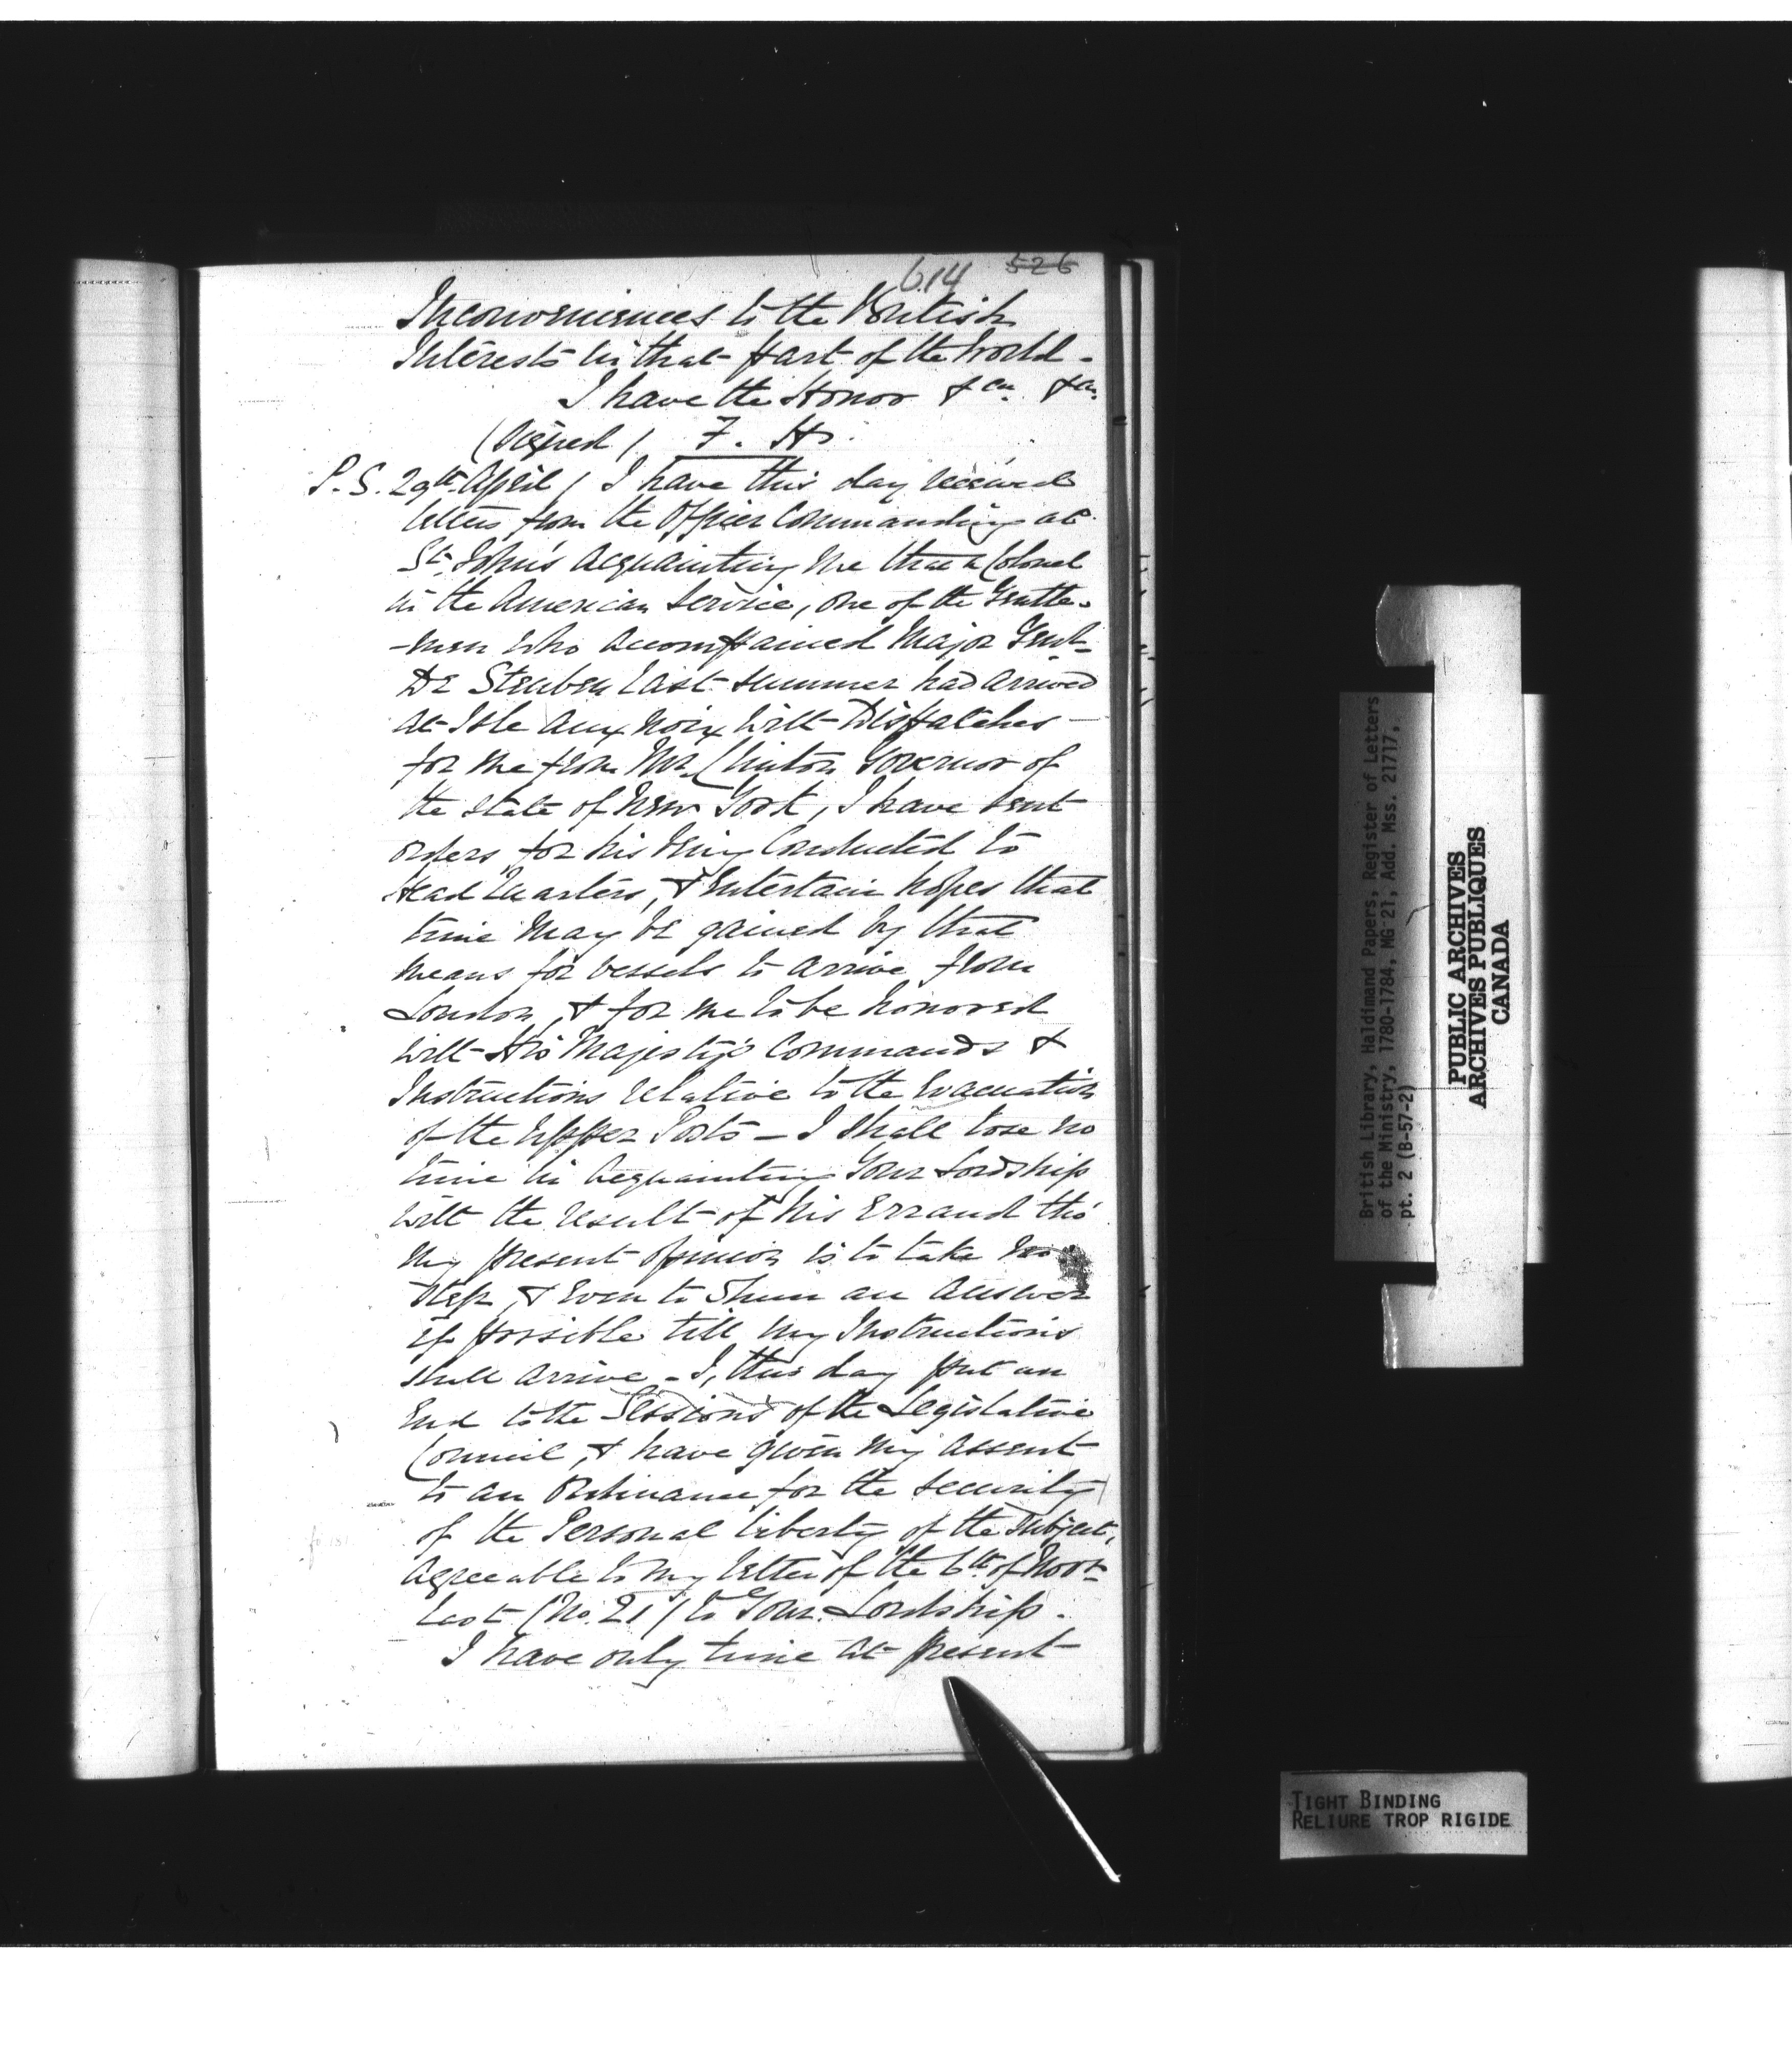 614 526
Inconveniences to the British
Interests in that part of the World -
I have the Honor &ca. &ca.
(Signed) F. H.
P.S. 29th. April / I have this day received
letters from the Officer Commanding at
St. John's Acquainting me that a Colonel
in the American Service, one of the Gentle-
-men who accompanied Major Genl.
De Steuben last summer had arrived
at Isle aux Noix with Dispatches -
for me from Mr. Clinton Governor of
the State of New York, I have sent
orders for his being Conducted to
Head Quarters, & Entertain hopes that
time may be gained by that
means for vessels to arrive from
London, & for me to be honored
with His Majesty's Commands &
Instructions relative to the Evacuation
of the Upper Posts - I shall lose no
time in Acquainting Your Lordship
with the result of his Errand tho'
my present opinion is to take no
step, & Even to Shun an Answer
if possible till my Instructions
shall arrive - I, this day put an
End to the Sessions of the Legislative
Council, & have given my assent
to an Ordinance for the security
of the Personal liberty of the subject,
agreeable to my letter of the 6th. of Novr.
last (No. 21) to Your Lordship.
I have only time at present
British Library, Haldimand Papers, Register of Letters
of the Ministry, 1780-1784, MG 21, Add. Mss. 21717,
pt. 2 (B-57-2)
PUBLIC ARCHIVES
ARCHIVES PUBLIQUES
CANADA
TIGHT BINDING
RELIURE TROP RIGIDE